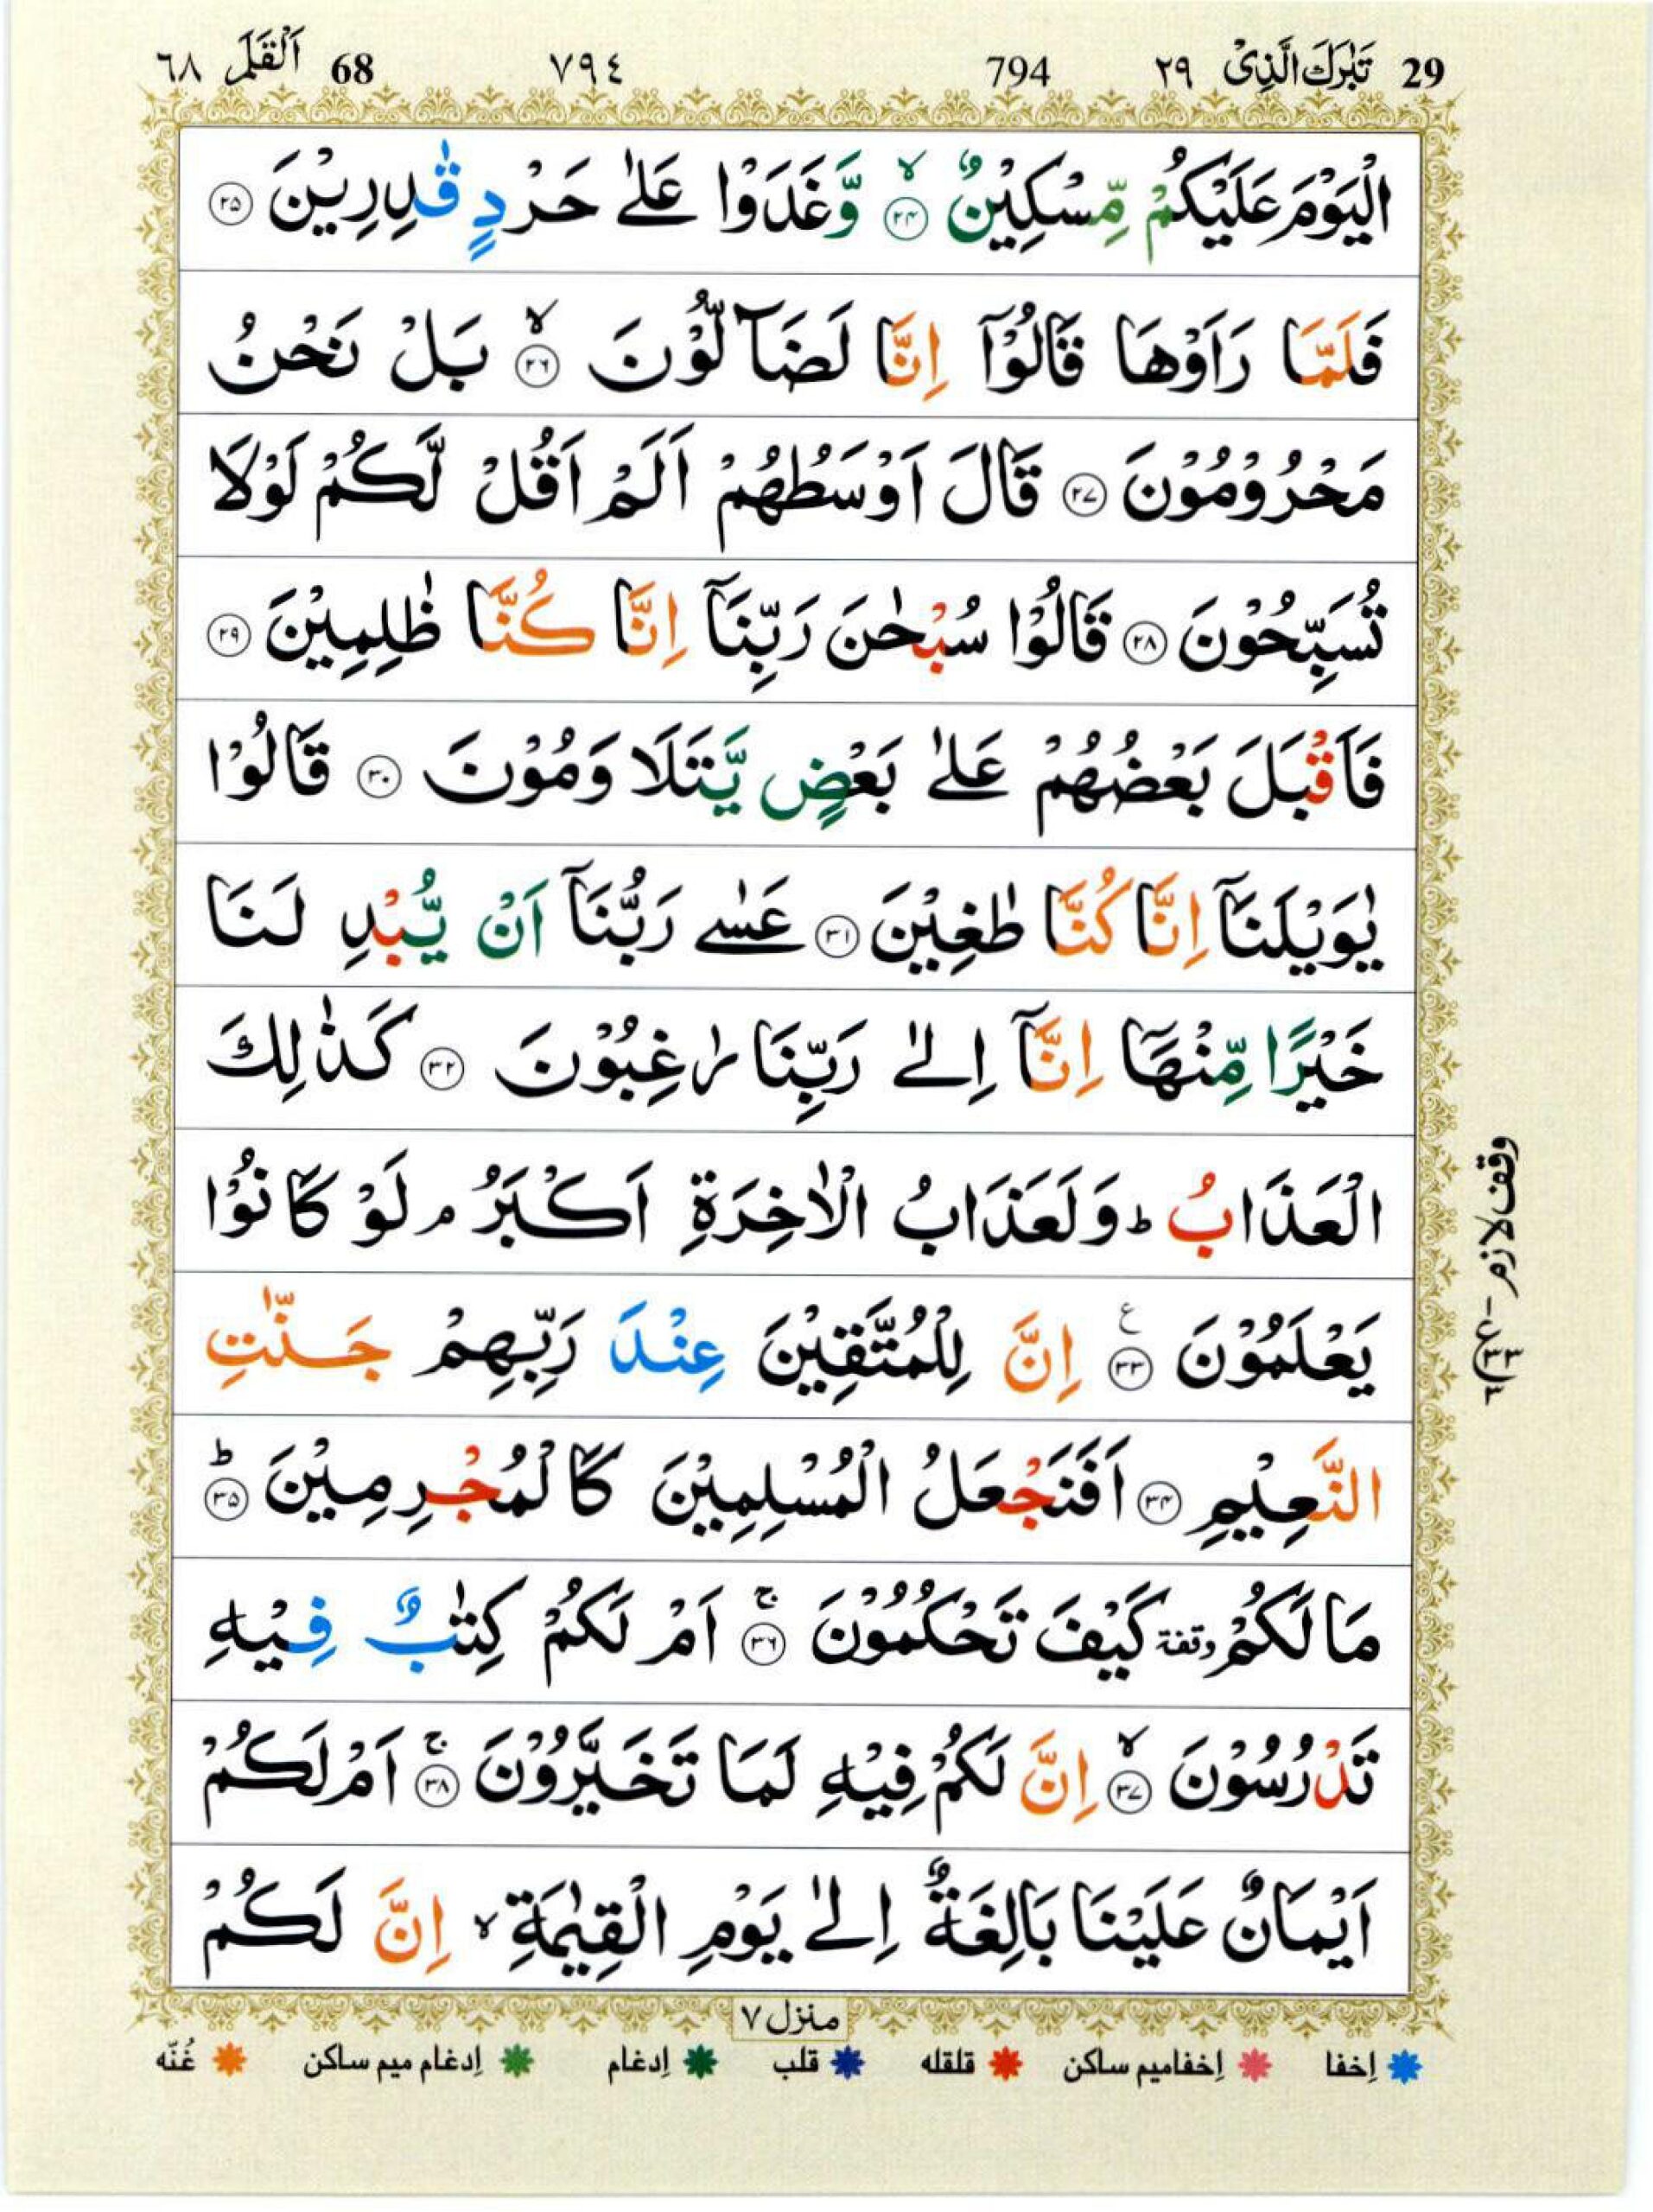 29 تَبٰرَكَ الَّذِىْ ٢٩ 794 ٧٩٤ 68 اَلْقَلَمِ ٦٨
الْيَوْمَ عَلَيْكُمْ مِّسْكِيْنٌ ۙ‏﴿۲۴﴾ وَّغَدَوْا عَلٰى حَرْدٍ قٰدِرِيْنَ ﴿۲۵﴾
فَلَمَّا رَاَوْهَا قَالُوْۤا اِنَّا لَضَآلُّوْنَ ۙ‏﴿۲۶﴾ بَلْ نَحْنُ
مَحْرُوْمُوْنَ ﴿۲۷﴾ قَالَ اَوْسَطُهُمْ اَلَمْ اَقُلْ لَّكُمْ لَوْلَا
تُسَبِّحُوْنَ ﴿۲۸﴾ قَالُوْا سُبْحٰنَ رَبِّنَاۤ اِنَّا كُنَّا ظٰلِمِيْنَ ﴿۲۹﴾
فَاَقْبَلَ بَعْضُهُمْ عَلٰى بَعْضٍ يَّتَلَاوَمُوْنَ ﴿۳۰﴾ قَالُوْا
يٰوَيْلَنَاۤ اِنَّا كُنَّا طٰغِيْنَ ﴿۳۱﴾ عَسٰى رَبُّنَاۤ اَنْ يُّبْدِلَنَا
خَيْرًا مِّنْهَاۤ اِنَّاۤ اِلٰى رَبِّنَا رٰغِبُوْنَ ﴿۳۲﴾ كَذٰلِكَ
الْعَذَابُ ؕ وَلَعَذَابُ الْاٰخِرَةِ اَكْبَرُ ۘ لَوْ كَانُوْا
يَعْلَمُوْنَ ﴿۳۳﴾ ع اِنَّ لِلْمُتَّقِيْنَ عِنْدَ رَبِّهِمْ جَنّٰتِ
النَّعِيْمِ ﴿۳۴﴾ اَفَنَجْعَلُ الْمُسْلِمِيْنَ كَالْمُجْرِمِيْنَ ؕ‏﴿۳۵﴾
مَا لَكُمْ وقفة كَيْفَ تَحْكُمُوْنَ ۚ‏﴿۳۶﴾ اَمْ لَكُمْ كِتٰبٌ فِيْهِ
تَدْرُسُوْنَ ۙ‏﴿۳۷﴾ اِنَّ لَكُمْ فِيْهِ لَمَا تَخَيَّرُوْنَ ۚ‏﴿۳۸﴾ اَمْ لَكُمْ
اَيْمَانٌ عَلَيْنَا بَالِغَةٌ اِلٰى يَوْمِ الْقِيٰمَةِ ۙ اِنَّ لَكُمْ
وقف لازم
منزل ٧
اِخفا اِخفامیم ساکن قلقله قلب اِدغام اِدغام میم ساکن غُنّه